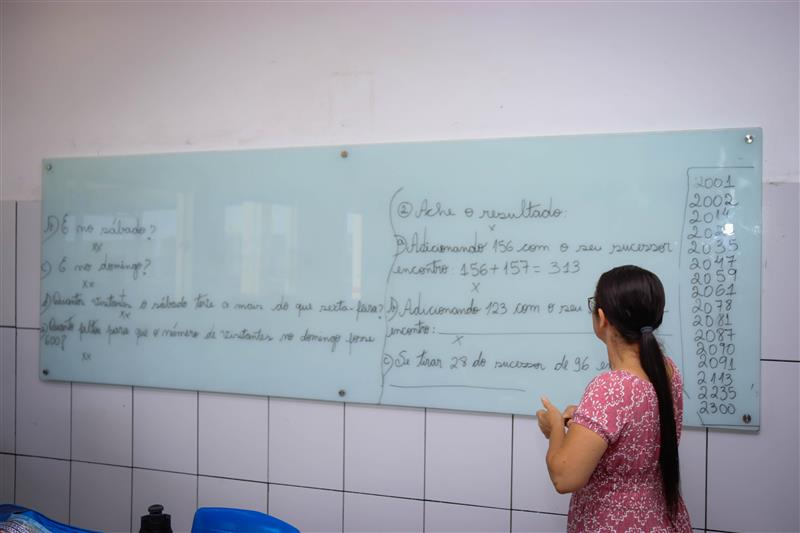 b) É no sábado?
xx
c) E no domingo?
xx
d) Quantos visitantes o sábado teve a mais do que sexta-feira?
xx
e) Quanto faltou para que o número de visitantes no domingo fosse
600?
xx
② Ache o resultado:
x
a) Adicionando 156 com o seu sucessor
encontro: 156+157= 313
x
b) Adicionando 123 com o seu
encontro:
x
c) Se tirar 28 do sucessor de 96
2001
2002
2014
2035
2047
2059
2061
2078
2081
2087
2090
2091
2113
2235
2300